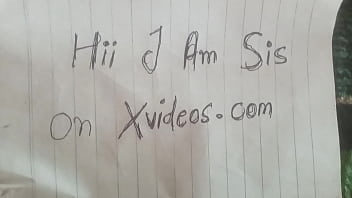 Hii J Am Sis
on Xvideos.com